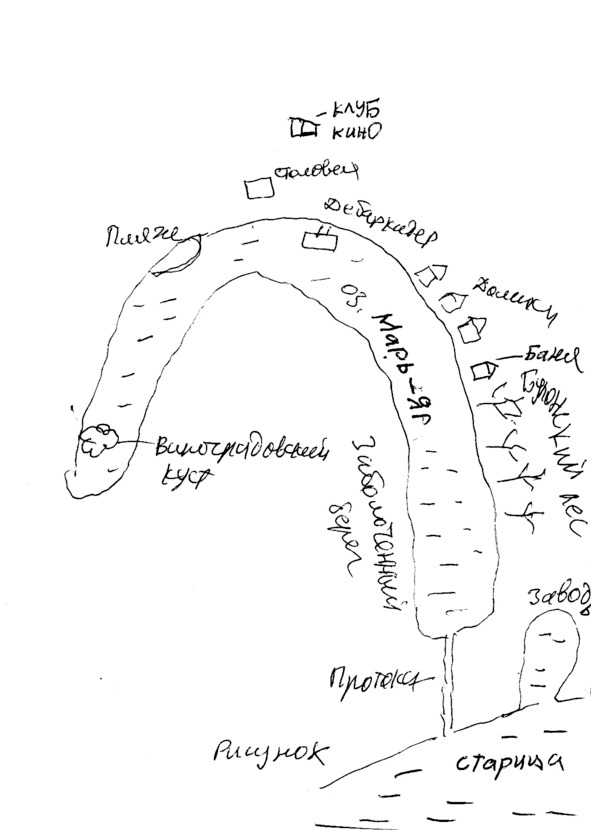 КЛУБ
КИНО
Столовая
Дебаркадер
Пляж
Домики
оз. Марь-яг
Баня
лес
Виноградовский
куст
Заболоченный
берег
Заводь
Протока
Рисунок
старица